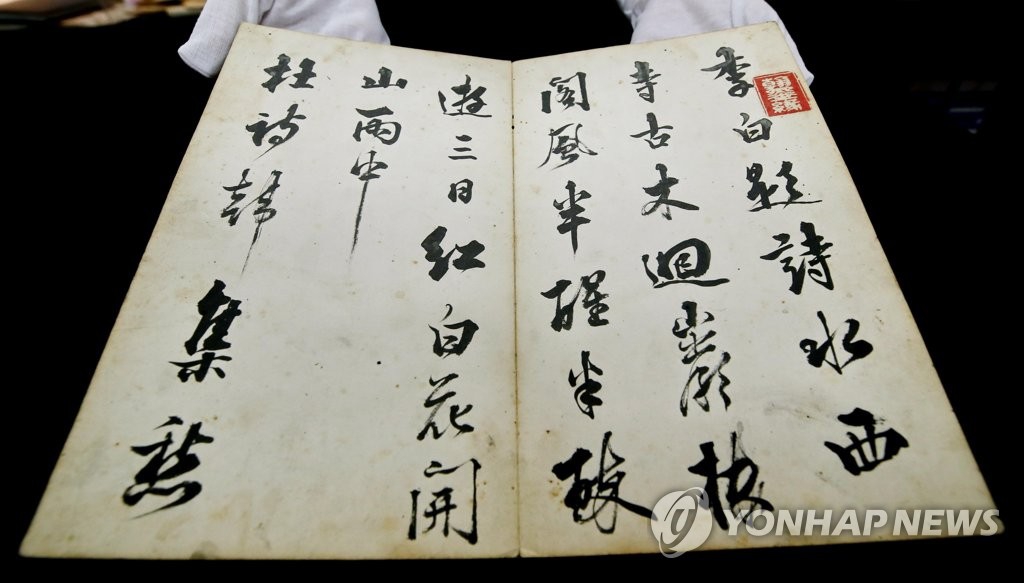 李白題詩水西
寺古木迴巖樓
閣風半醒半醉
遊三日紅白花開
山雨中
杜詩韓集愁
翰墨緣
YONHAP NEWS